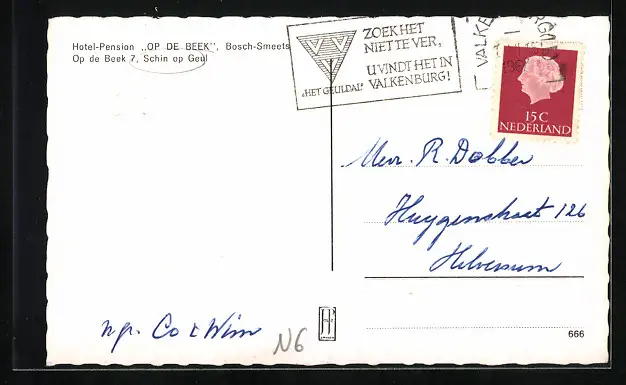 Hotel-Pension „OP DE BEEK", Bosch-Smeets
Op de Beek 7, Schin op Geul
ZOEK HET
NIET TE VER,
U VINDT HET IN
VALKENBURG!
„HET GEULDAL"
VALKE
15 C
NEDERLAND
Mevr. R. Dobber
Huygensstraat 126
Hilversum
Co & Wim
N6
666